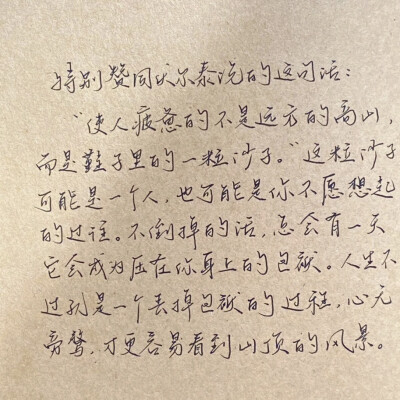 特别赞同伏尔泰说的这句话：
“使人疲惫的不是远方的高山，
而是鞋子里的一粒沙子。”这粒沙子
可能是一个人，也可能是你不愿想起
的过往。不倒掉的话，总会有一天
它会成为压在你身上的包袱。人生不
过就是一个丢掉包袱的过程，心无
旁骛，才更容易看到山顶的风景。